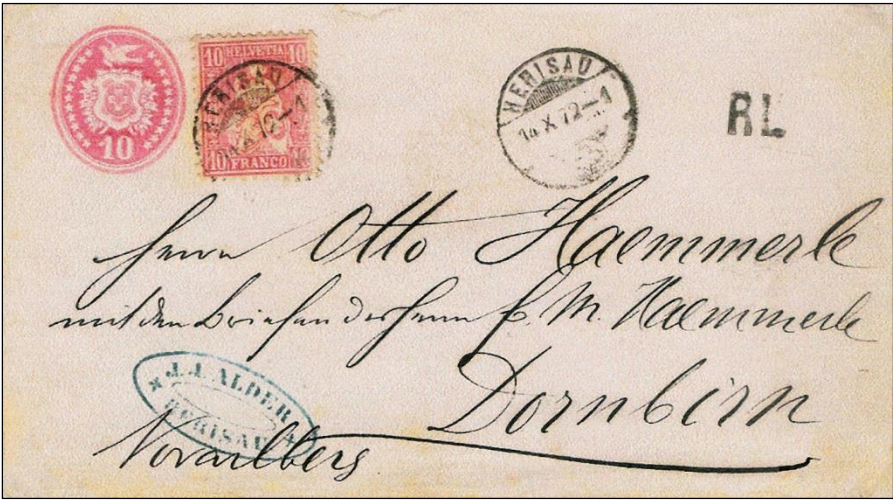 10
10 HELVETIA 10
10 FRANCO
HERISAU
14 X 72-1
HERISAU
14 X 72-1
RL
Herrn Otto Haemmerle
mit den Briefen der Herrn F. M. Haemmerle
Dornbirn
J. J. ALDER
HERISAU
Vorarlberg